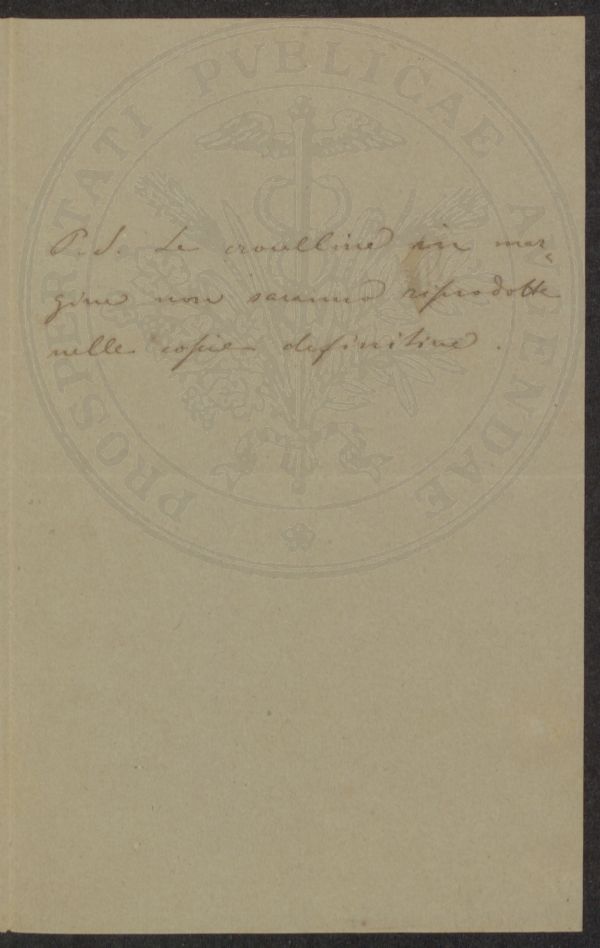 PROSPERITATI PVBLICAE AVGENDAE
P. S. Le crocelline in mar=
gine non saranno riprodotte
nelle copie definitive.